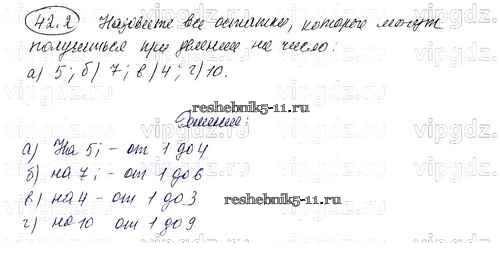 42.2 Назовите все остатки, которые могут
получиться при делении на число:
а) 5; б) 7; в) 4; г) 10.
reshebnik5-11.ru
Решение:
а) На 5; - от 1 до 4
б) на 7; - от 1 до 6
в) на 4 - от 1 до 3
reshebnik5-11.ru
г) на 10 от 1 до 9